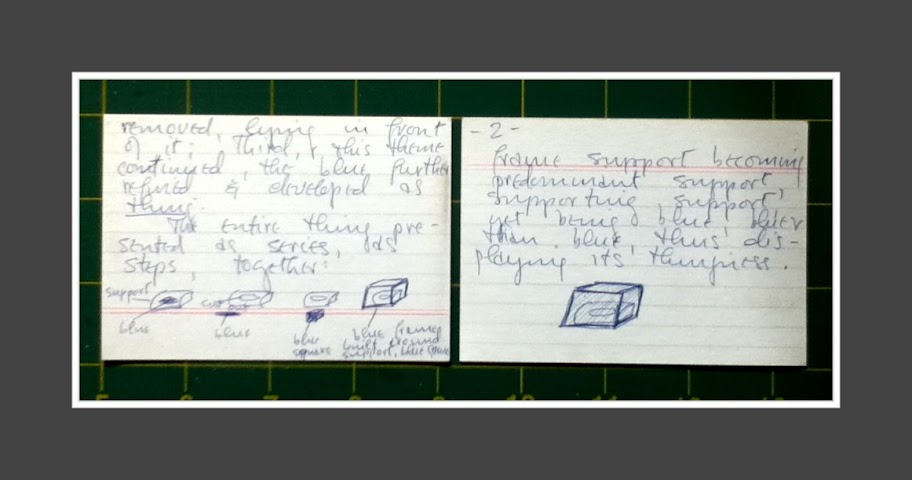 removed, lying in front
of it; third, & this theme
continued, the blue further
refined & developed as
thing.
The entire thing pre-
sented as series, as
steps, together:
support
cut out
blue
blue
blue
square
blue frame
built around
support, blue
- 2 -
frame support becoming
predominant support
supporting support,
yet being blue bluer
than blue, thus dis-
playing its thingness.
5
7
10
11